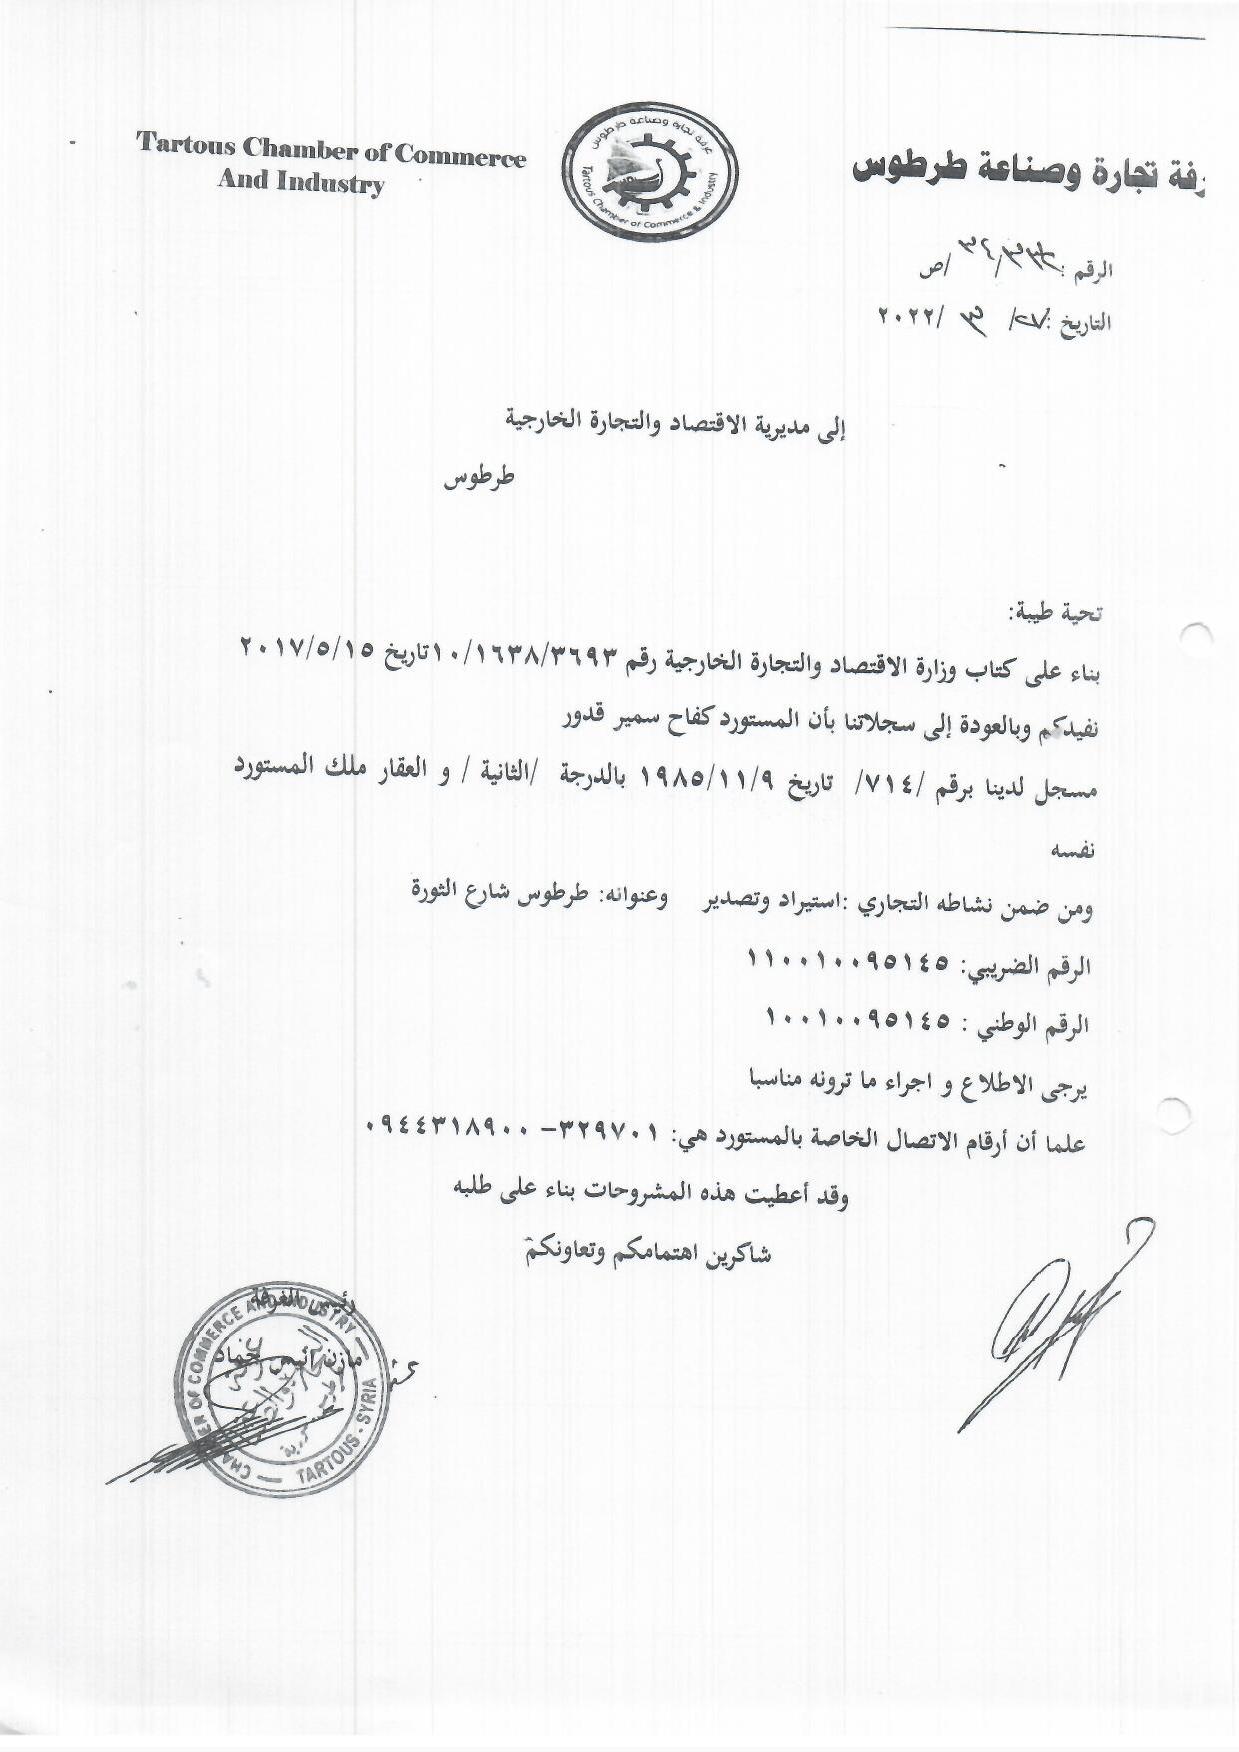 Tartous Chamber of Commerce
And Industry
غرفة تجارة وصناعة طرطوس
Tartous Chamber of Commerce & Industry
رفة تجارة وصناعة طرطوس
الرقم : /ص
التاريخ :٢٧/ ٣ /٢٠٢٢
إلى مديرية الاقتصاد والتجارة الخارجية
طرطوس
تحية طيبة:
بناء على كتاب وزارة الاقتصاد والتجارة الخارجية رقم ١٠/١٦٣٨/٣٦٩٣تاريخ ٢٠١٧/٥/١٥
نفيدكم وبالعودة إلى سجلاتنا بأن المستورد كفاح سمير قدور
مسجل لدينا برقم /٧١٤/ تاريخ ١٩٨٥/١١/٩ بالدرجة /الثانية / و العقار ملك المستورد
نفسه
ومن ضمن نشاطه التجاري :استيراد وتصدير وعنوانه: طرطوس شارع الثورة
الرقم الضريبي: ١١٠٠١٠٠٩٥١٤٥
الرقم الوطني : ١٠٠١٠٠٩٥١٤٥
يرجى الاطلاع و اجراء ما ترونه مناسبا
علما أن أرقام الاتصال الخاصة بالمستورد هي: ٣٢٩٧٠١– ٠٩٤٤٣١٨٩٠٠
وقد أعطيت هذه المشروحات بناء على طلبه
شاكرين اهتمامكم وتعاونكم
رئيس الغرفة
مازن انيس حماد
CHAMBER OF COMMERCE AND INDUSTRY
TARTOUS - SYRIA